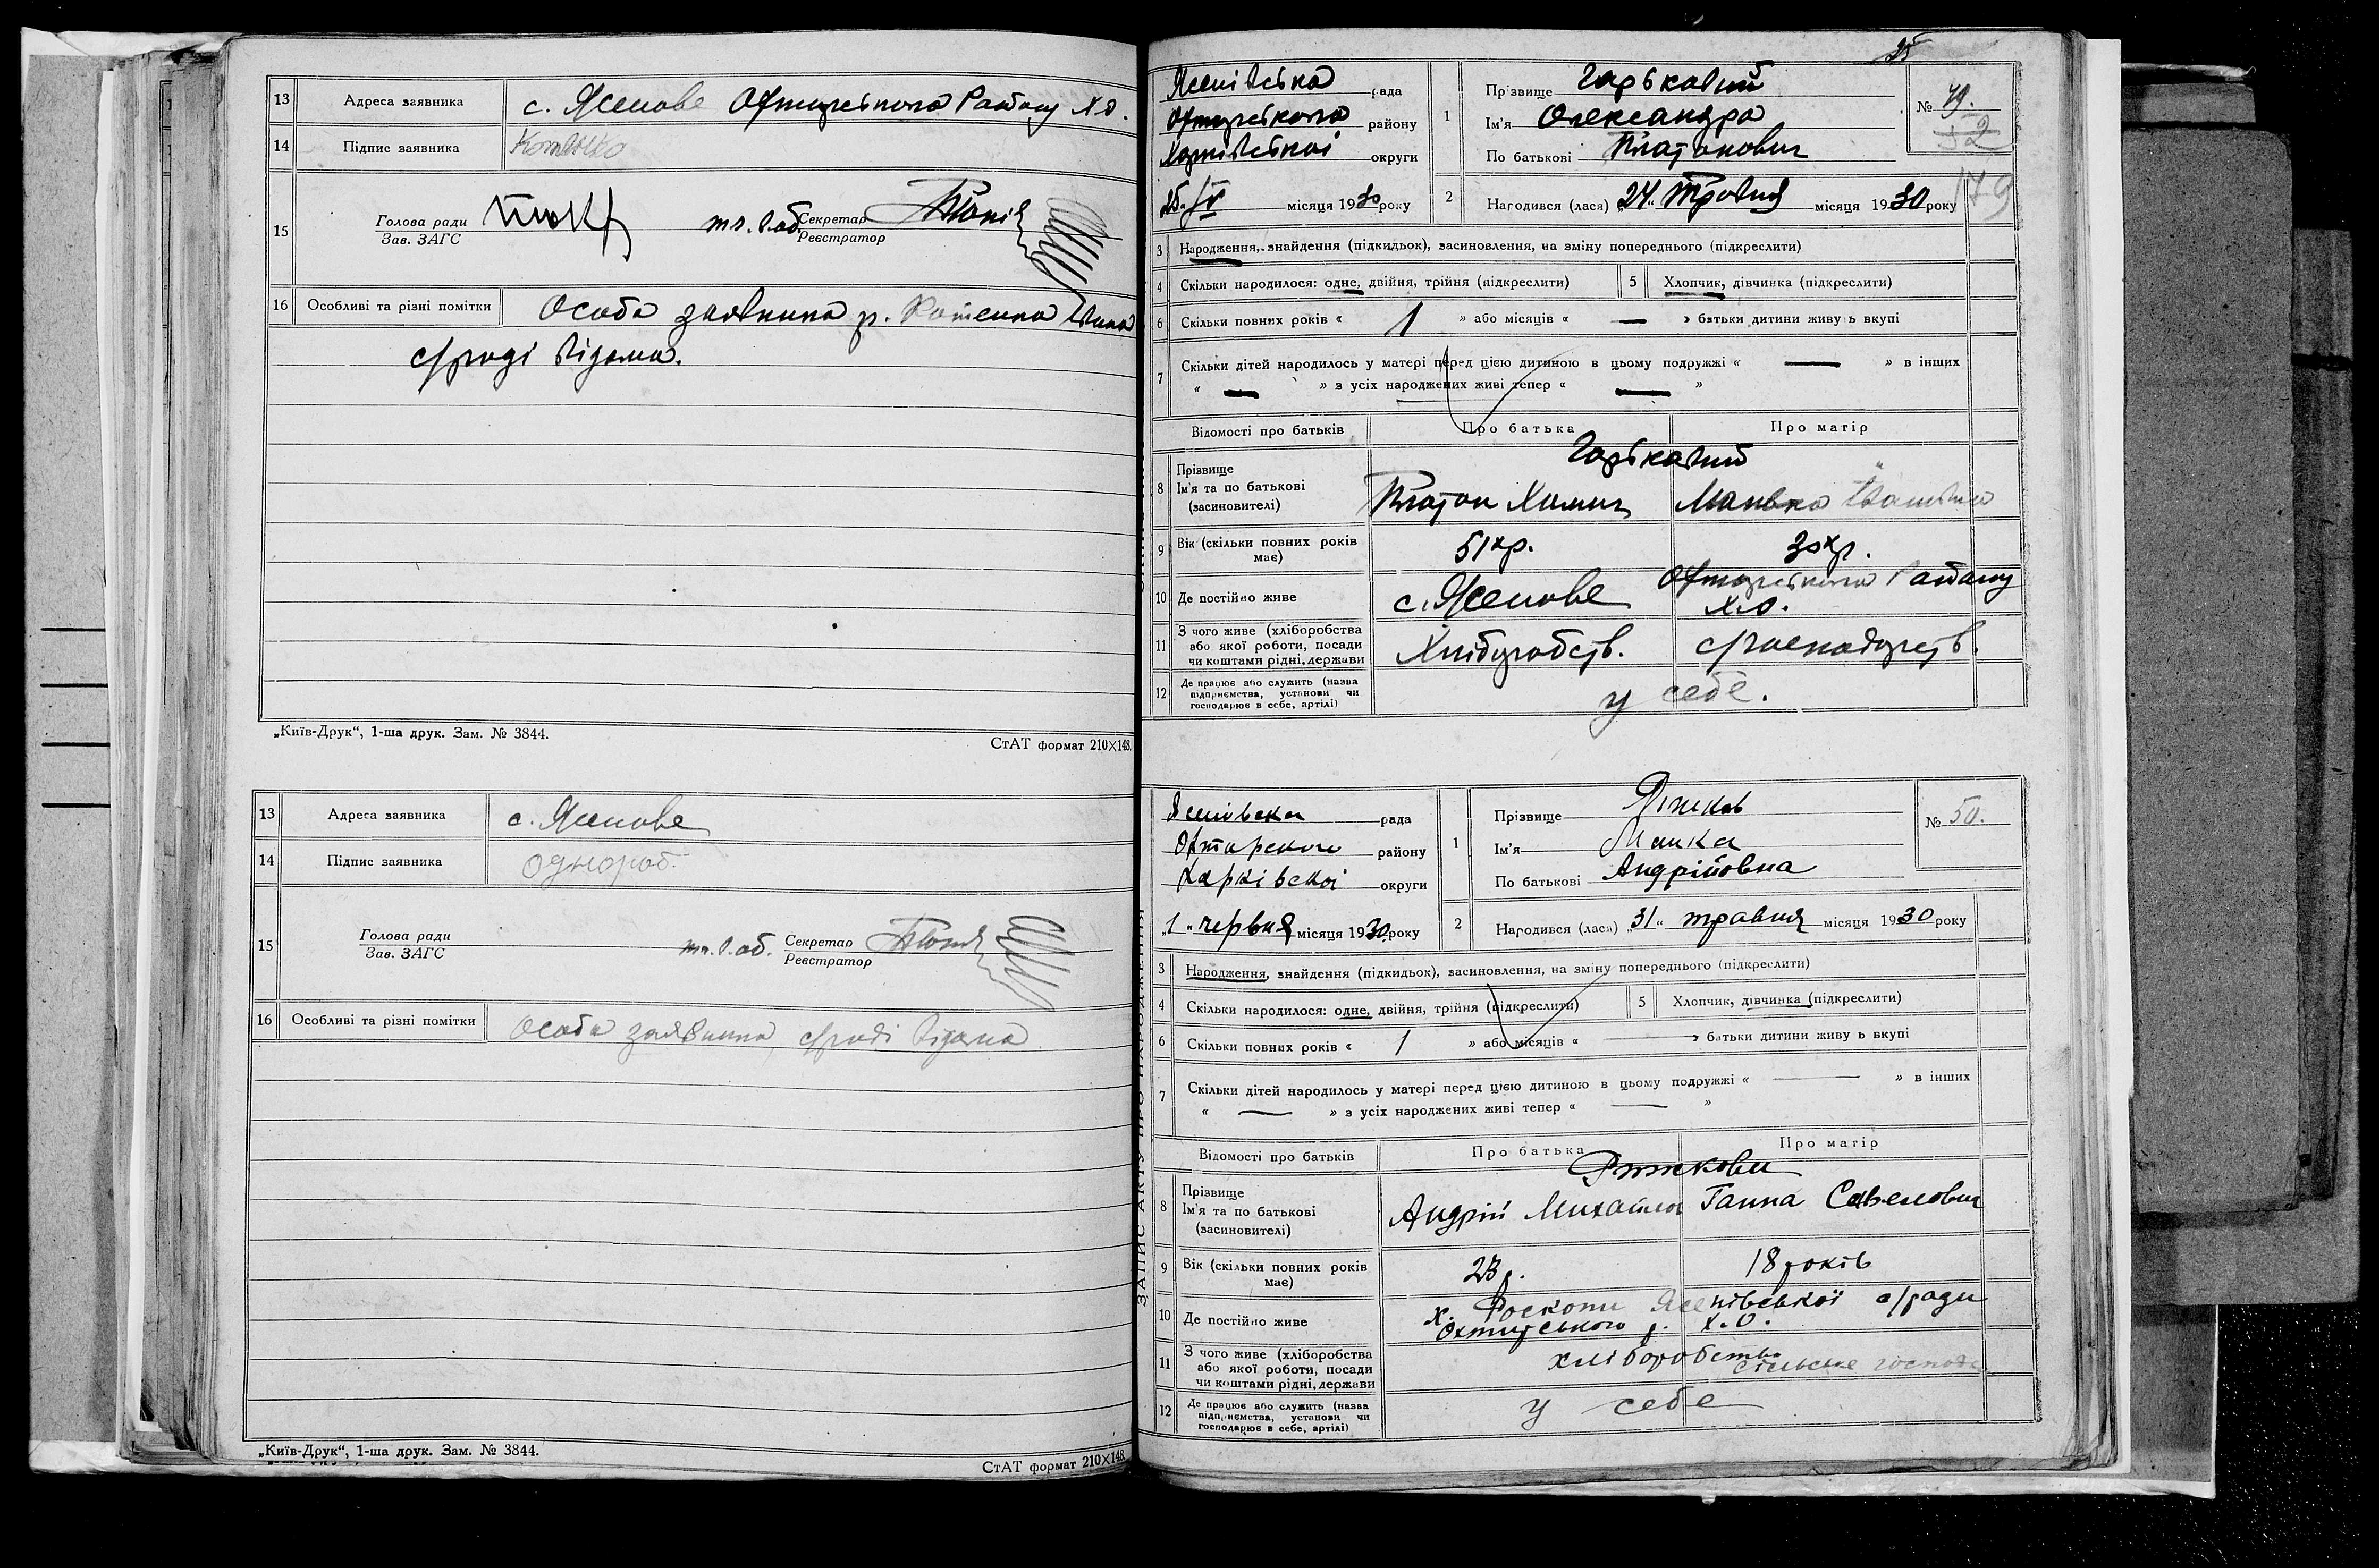 13 Адреса заявника с. Ясенове Охтирського Району Х.О.
14 Підпис заявника
15 Голова ради
Зав. ЗАГС
Секретар
Реєстратор
16 Особливі та різні помітки Особа заявника гр. Івана
с/раді відома.
„Київ-Друк“, 1-ша друк. Зам. № 3844.
СтАТ формат 210×148.
13 Адреса заявника с. Ясенове
14 Підпис заявника
15 Голова ради
Зав. ЗАГС
Секретар
Реєстратор
16 Особливі та різні помітки Особа заявника с/раді відома
„Київ-Друк“, 1-ша друк. Зам. № 3844.
СтАТ формат 210×148.
ЗАПИС АКТУ ПРО НАРОДЖЕННЯ
25
Ясенівська рада
Охтирського району
Харківської округи
25. місяця 1930 року
1 Прізвище Горьковий
Ім'я Олександра
По батькові Платонович
№ 49.
52
179
2 Народився (лася) „24“ Травня місяця 1930 року
3 Народження, знайдення (підкидьок), засиновлення, на зміну попереднього (підкреслити)
4 Скільки народилося: одне, двійня, трійня (підкреслити) 5 Хлопчик, дівчинка (підкреслити)
6 Скільки повних років « 1 » або місяців « — » батьки дитини живуть вкупі
7 Скільки дітей народилось у матері перед цією дитиною в цьому подружжі « — » в інших
« — » з усіх народжених живі тепер « — »
Відомості про батьків Про батька Про матір
Горьковий
8 Прізвище
Ім'я та по батькові
(засновителі) Платон Хомич Іванівна
9 Вік (скільки повних років має) 51 р. 30 р.
10 Де постійно живе с. Ясенове Охтирського Району
Х.О.
11 З чого живе (хліборобства
або якої роботи, посади
чи коштами рідні, держави Хліборобств.
12 Де працює або служить (назва
підприємства, установи чи
господарює в себе, артілі) у себе.
Ясенівська рада
Охтирського району
Харківської округи
„1“ червня місяця 1930 року
1 Прізвище Рижков
Ім'я
По батькові Андрійовна
№ 50.
2 Народився (лася) „31“ травня місяця 1930 року
3 Народження, знайдення (підкидьок), засиновлення, на зміну попереднього (підкреслити)
4 Скільки народилося: одне, двійня, трійня (підкреслити) 5 Хлопчик, дівчинка (підкреслити)
6 Скільки повних років « 1 » або місяців « — » батьки дитини живуть вкупі
7 Скільки дітей народилось у матері перед цією дитиною в цьому подружжі « — » в інших
« — » з усіх народжених живі тепер « — »
Відомості про батьків Про батька Про матір
Рижкови
8 Прізвище
Ім'я та по батькові
(засиновителі) Андрій Михайлов Ганна Савеловна
9 Вік (скільки повних років має) 23 р. 18 років
10 Де постійно живе х. Роскопи Ясенівської с/ради
Охтирського р. Х.О.
11 З чого живе (хліборобства
або якої роботи, посади
чи коштами рідні, держави хліборобство
сільське господ.
12 Де працює або служить (назва
підприємства, установи чи
господарює в себе, артілі) у себе